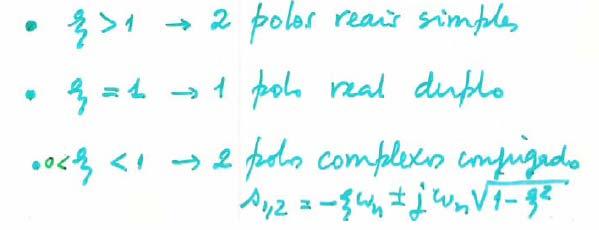 • ξ > 1 → 2 polos reais simples
• ξ = 1 → 1 polo real duplo
• 0 < ξ < 1 → 2 polos complexos conjugado
s₁,₂ = -ξωₙ ± jωₙ√(1 - ξ²)